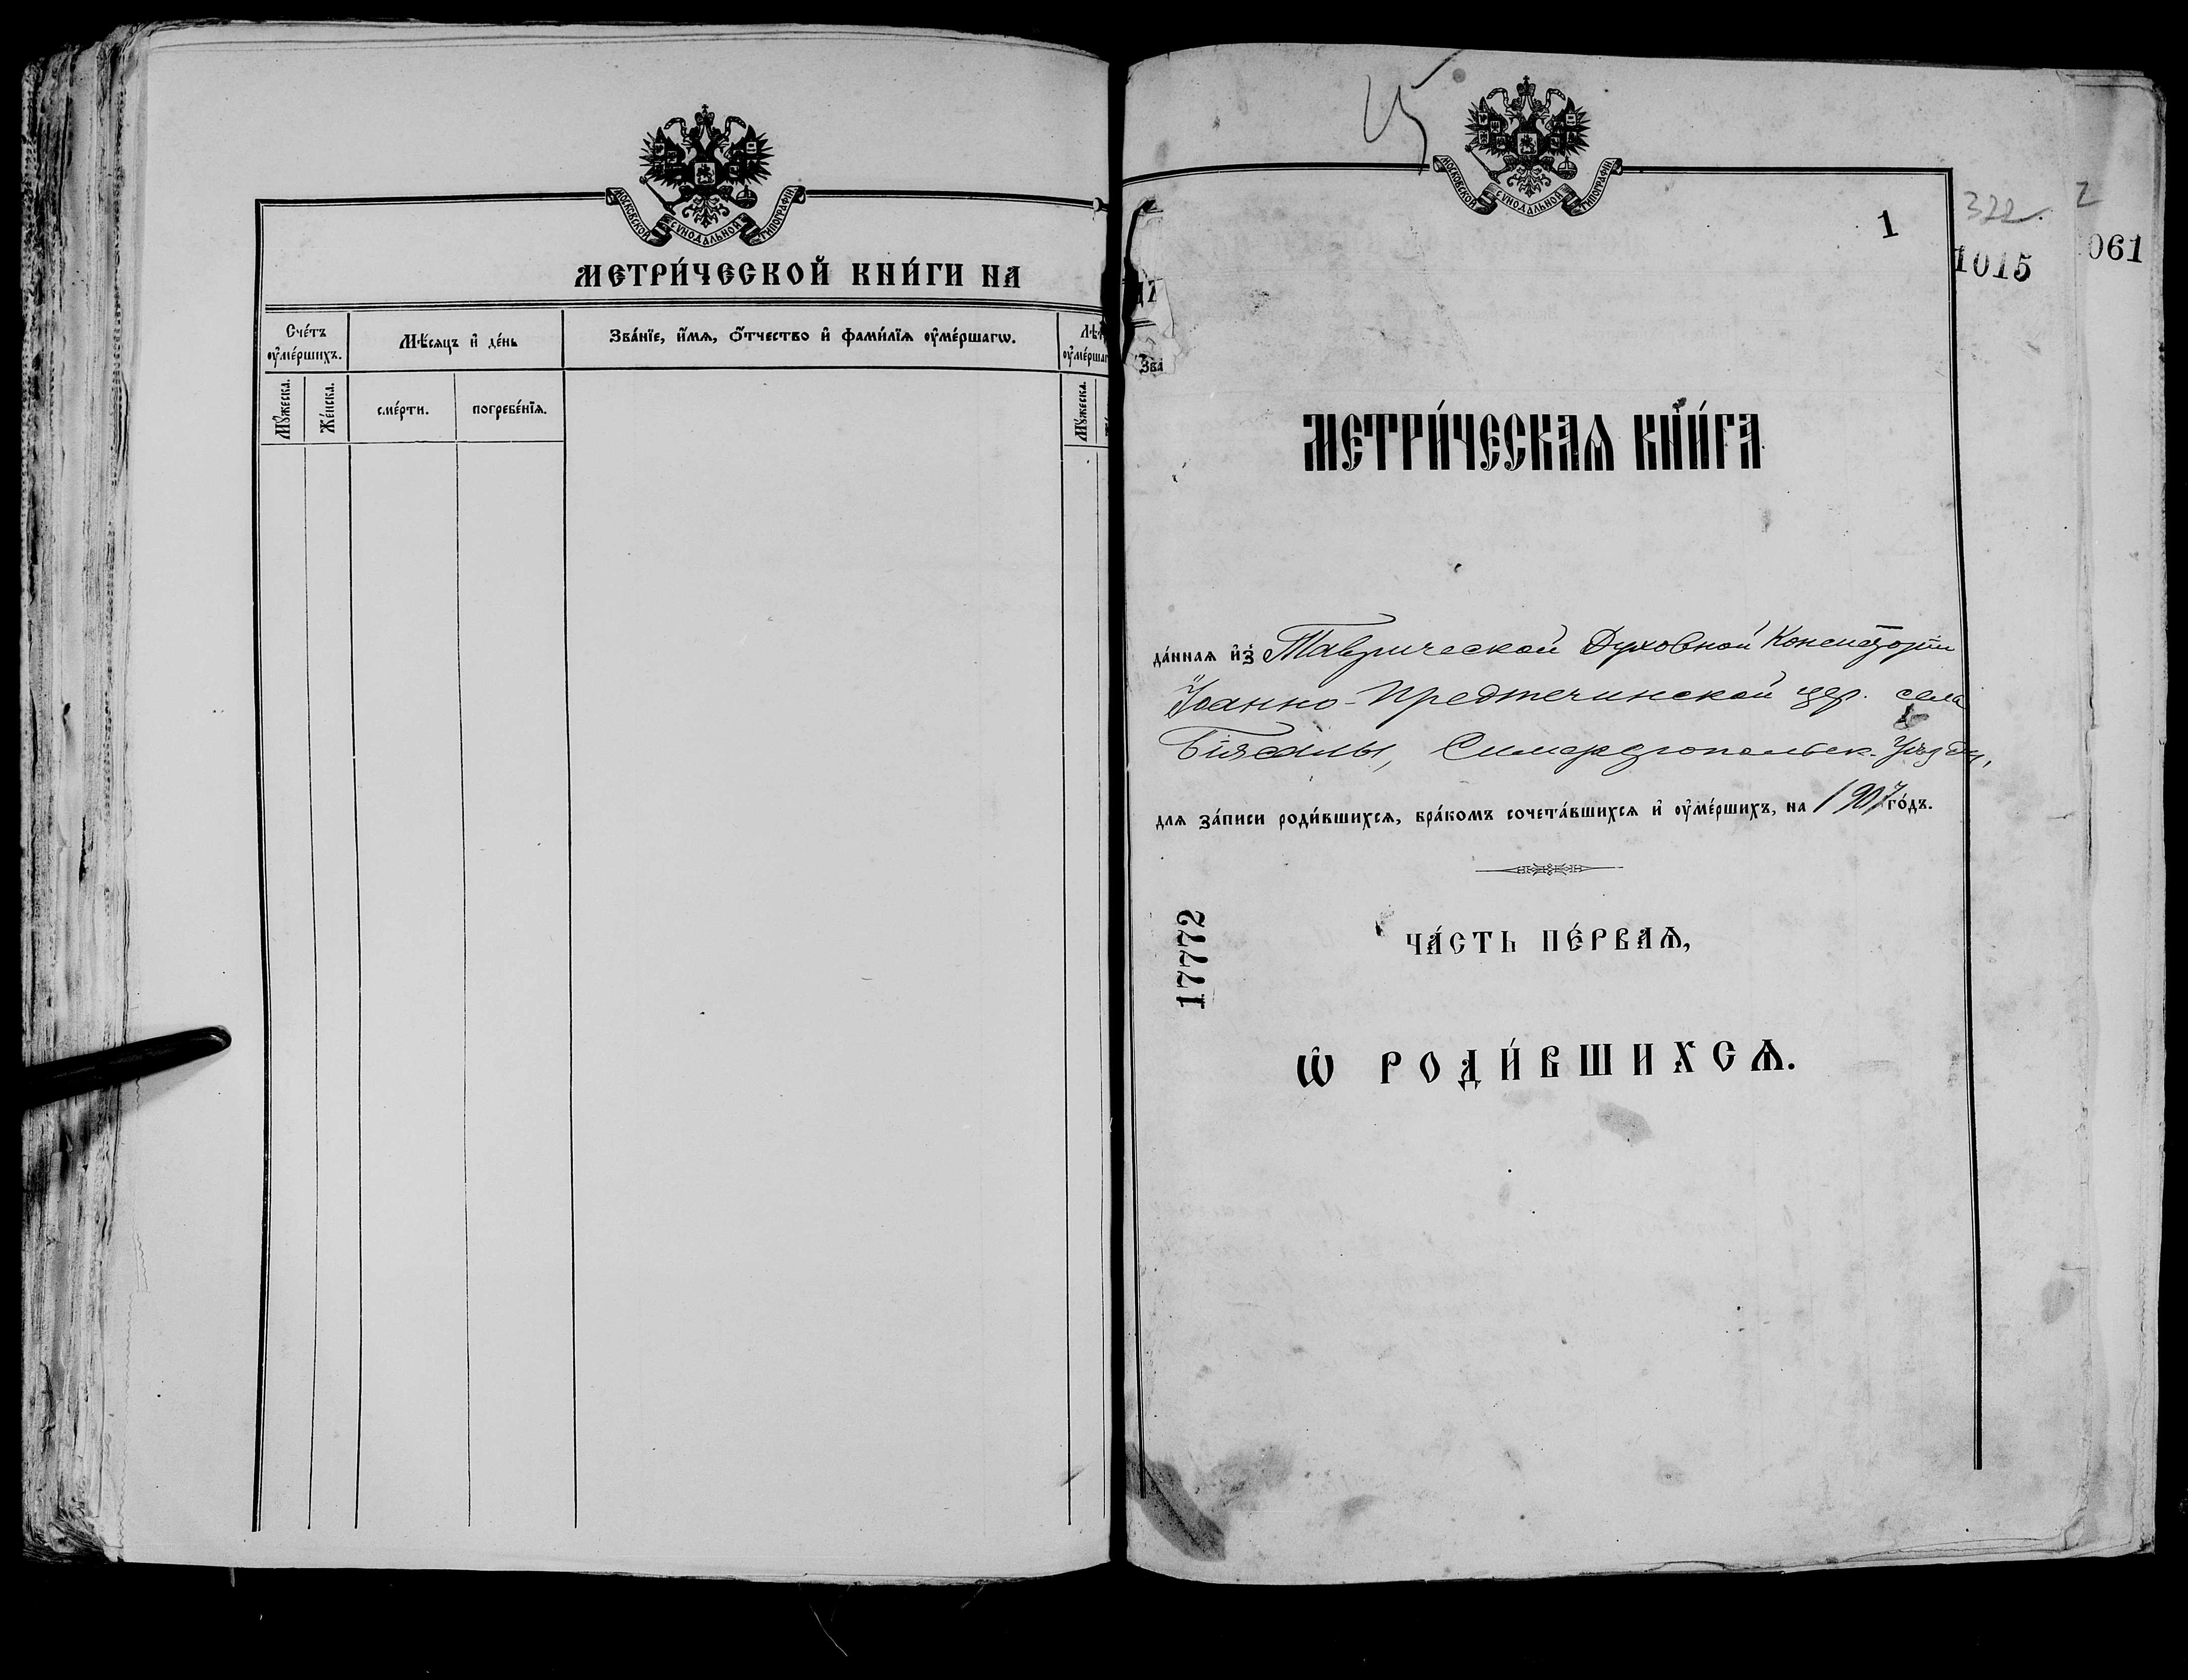 МОСКОВСКОЙ СУНОДАЛЬНОЙ ТИПОГРАФІИ
МЕТРИ́ЧЕСКОЙ КНИ́ГИ НА
Сче́тъ ᲂу҆ме́ршихъ.
Мѣ́сяцъ и҆ де́нь
Зва́нїе, и҆́мѧ, ѻ҆́тчество и҆ фами́лїѧ ᲂу҆ме́ршагѡ.
Мꙋ́жеска.
Же́нска.
сме́рти.
погребе́нїѧ.
Мꙋ́жеска.
25
МОСКОВСКОЙ СУНОДАЛЬНОЙ ТИПОГРАФІИ
1
322
2
1015
061
Зва́
МЕТРИ́ЧЕСКАѦ КНИ́ГА
да́ннаѧ и҆з̾ Таврической Духовной Консисторіи
Іоанно-Предтечинской цер. села
Біясалы, Симферопольск. уѣзда,
длѧ за́писи роди́вшихсѧ, бра́комъ сочета́вшихсѧ и҆ ᲂу҆ме́ршихъ, на 1907 го́дъ.
17772
ЧА́СТЬ ПЕ́РВАѦ,
Ѡ҆ РОДИ́ВШИХСѦ.